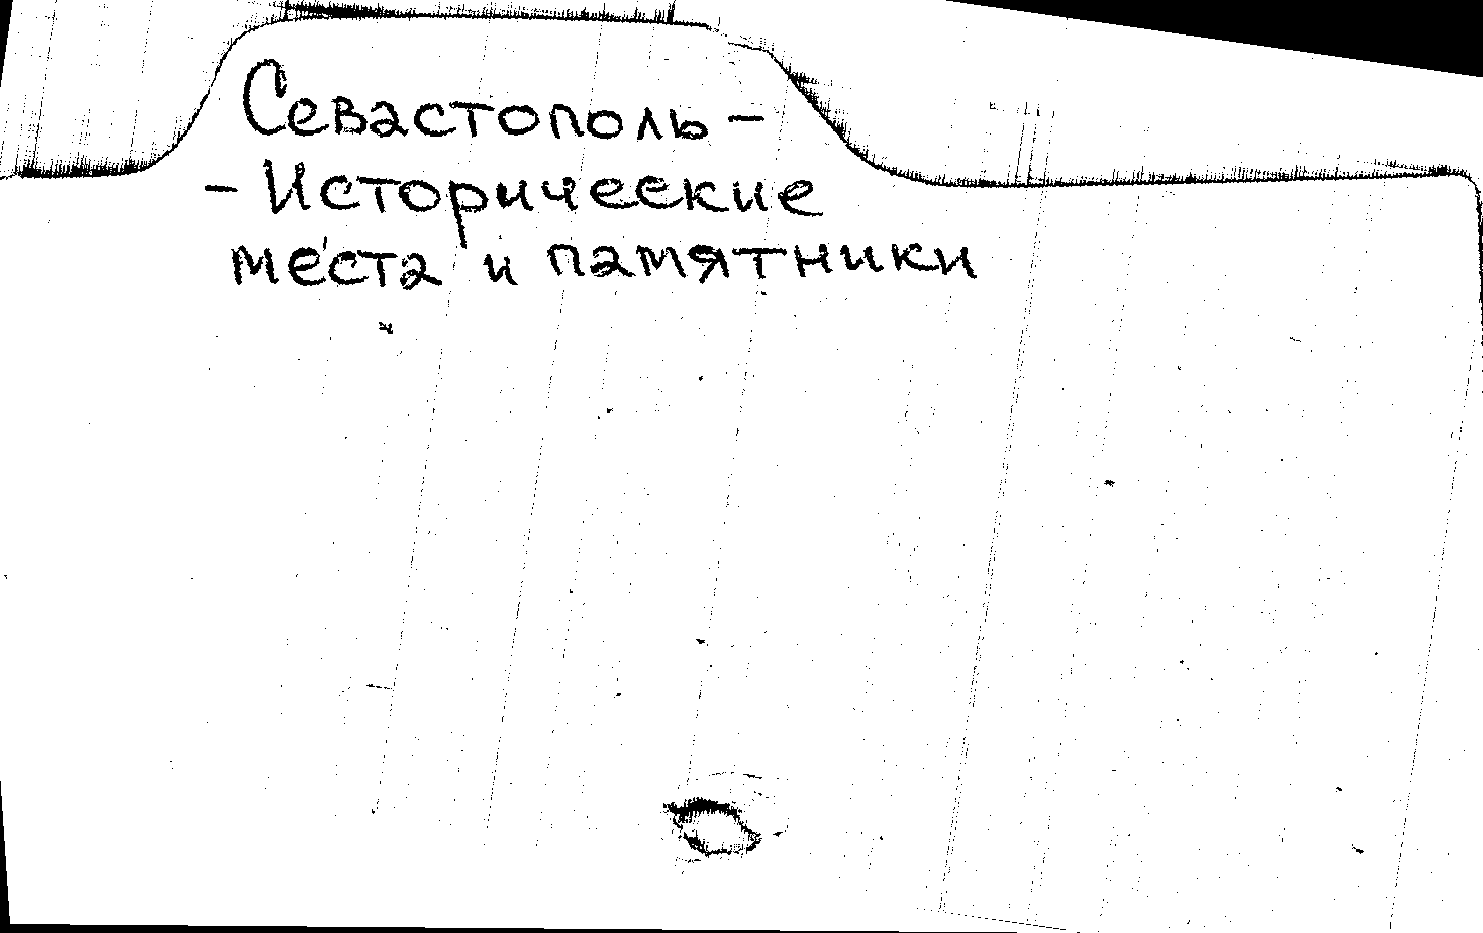 Севастополь -
- Исторические
места и памятники